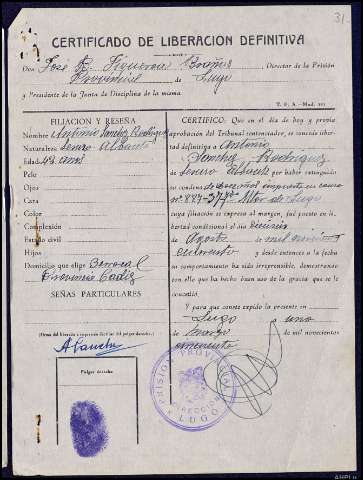 31.
CERTIFICADO DE LIBERACION DEFINITIVA
Don José R. Figueroa Director de la Prisión
Provincial de Lugo
y Presidente de la Junta de Disciplina de la misma.
T. P. A.-Mod.
FILIACION Y RESEÑA
Nombre Antonio Sanchez Rodriguez
Naturaleza
Edad 43 años
Pelo
Ojos
Cara
Color
Complexión
Estado civil
Hijos
Domicilio que elige
Provincia Cadiz
SEÑAS PARTICULARES
(Firma del liberado o impresión dactilar del pulgar derecho.)
ASanchez
Pulgar derecho
CERTIFICO: Que en el día de hoy y previa
aprobación del Tribunal sentenciador, se concede libertad
definitiva a Antonio
Sanchez Rodriguez
de por haber extinguido
su condena de doce años impuesta en causa
nº de Lugo
cuya filiación se expresa al margen, fué puesto en libertad
condicional el día
de Agosto de mil novecientos
cuarenta y desde entonces a la fecha
su comportamiento ha sido irreprensible, demostrando
con ello que ha hecho buen uso de la gracia que se le
concedió
Y para que conste expido la presente en
Lugo a uno
de marzo de mil novecientos
PRISION PROVINCIAL
DIRECCION
LUGO